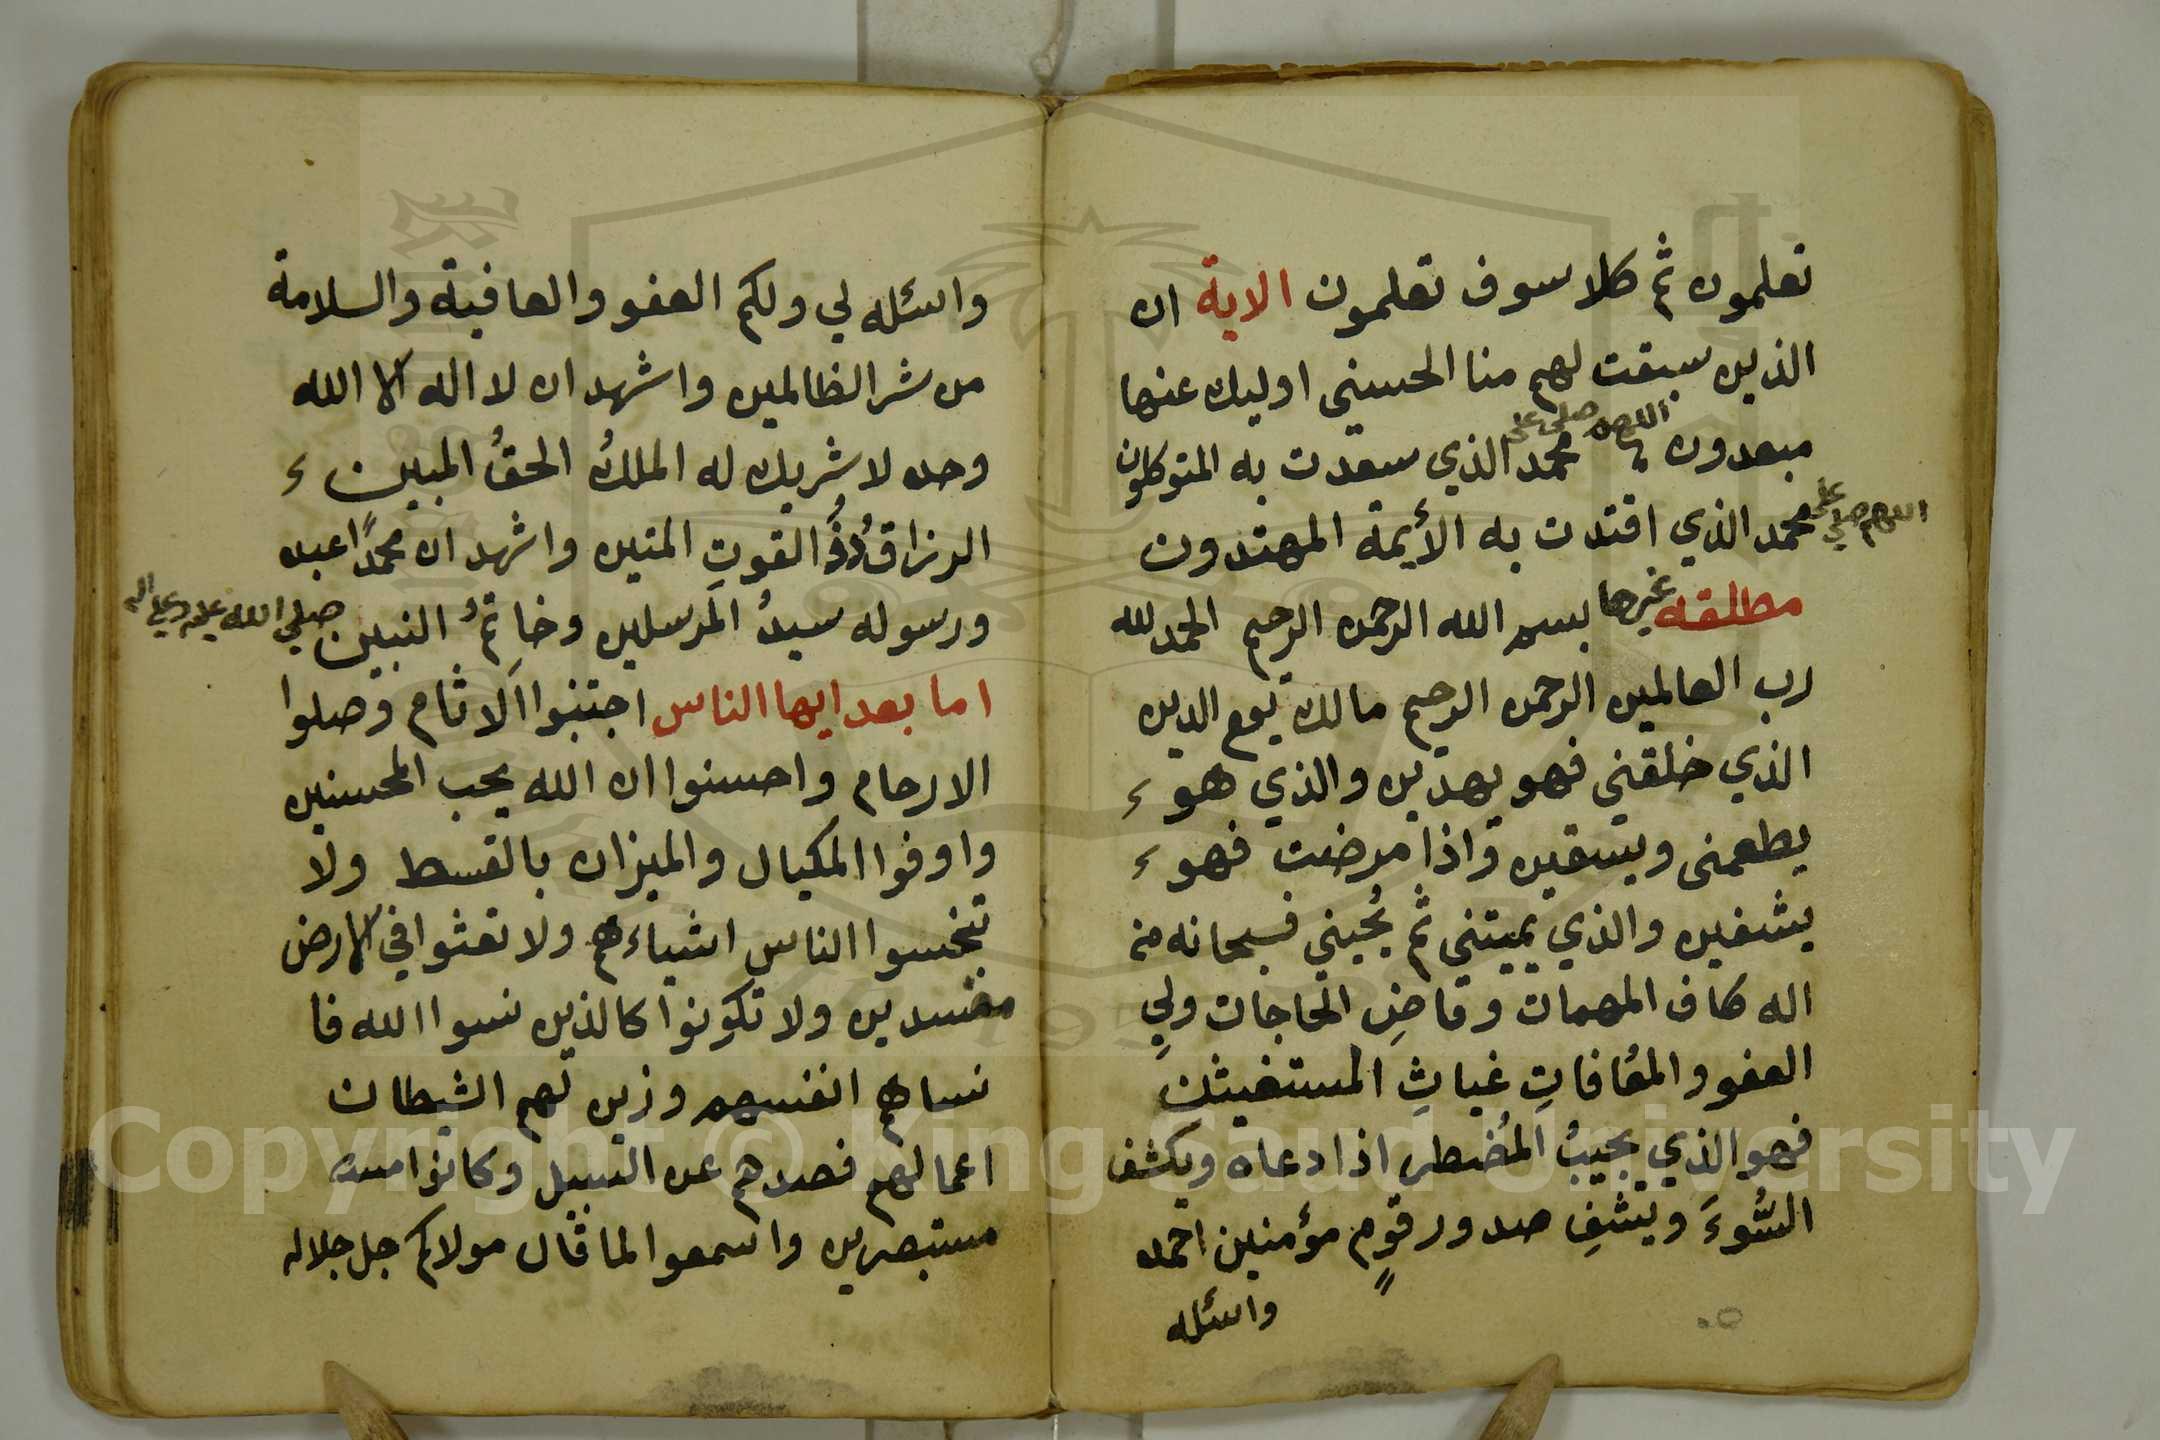 تعلمون ثم كلا سوف تعلمون الاية ان
الذين سبقت لهم منا الحسني اوليك عنها
مبعدون اللهم صلي علي محمد الذي سعدت به المتوكلون
اللهم صلي علي محمد الذي اقتدت به الأيمة المهتدون
مطلقه غيرها بسم الله الرحمن الرحيم الحمد لله
رب العالمين الرحمن الرحيم مالك يوم الدين
الذي خلقني فهو يهدين والذي هو
يطعمني ويسقين واذا مرضت فهو
يشفين والذي يميتني ثم يُحيني فسبحانه من
اله كاف المهمات وقاضِ الحاجات ولي
العفو والمعُافاتِ غياثِ المستغيثن
فهو الذي يجيبُ المُضطر اذا دعاه ويكشف
السُّوءَ ويشفِ صدور قومٍ مؤمنين احمده
واسئله
واسئله لي ولكم العفو والعافية والسلامة
من شر الظالمين واشهد ان لا اله الا الله
وحده لا شريك له الملكُ الحقُ المبين
الرزاق ذُوُ القوتِ المتين واشهد ان محمدًا عبده
ورسوله سيدُ المرسلين وخاتِمُ النبين صلي الله عليه وعلي اله
اما بعد ايها الناس اجتنبوا الاثام وصلوا
الارحام واحسنوا ان الله يحب المحسنين
واوفوا المكيال والميزان بالقسط ولا
تبخسوا الناس اشياءهم ولا تعثوا في الارض
مفسدين ولا تكونوا كالذين نسوا الله فا
نساهم انفسهم وزين لهم الشيطان
اعمالهم فصدهم عن السبيل وكانوا
مستبصرين واسمعوا لما قال مولاكم جل جلاله
Copyright © King Saud University